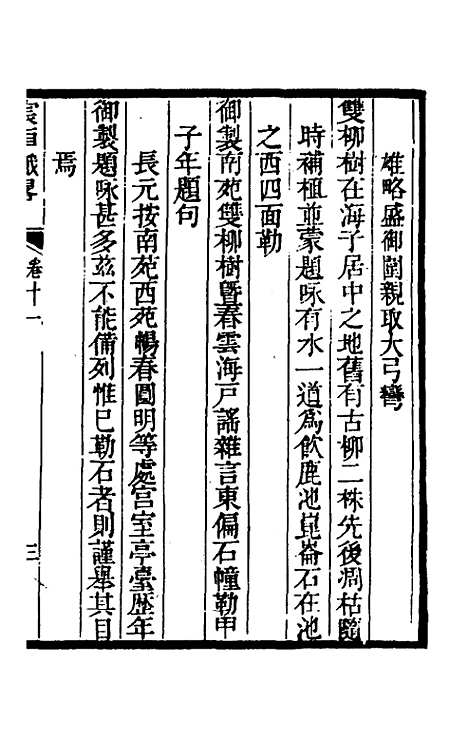 雄略盛御圍親取大弓彎
雙柳樹在海子居中之地舊有古柳二株先後凋枯隨
時補植並蒙題咏有水一道爲飲鹿池崑崙石在池
之西四面勒
御製南苑雙柳樹曁春雲海戸謠雜言東偏石幢勒甲
子年題句
長元按南苑西苑暢春圓明等處宫室亭臺歴年
御製題咏甚多兹不能備列惟已勒石者則謹舉其目
焉
宸垣識畧
卷十一
三